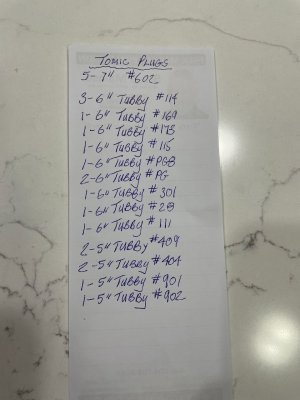 TOMIC PLUGS
5-7" #602
3-6" TUBBY #114
1-6" TUBBY #169
1-6" TUBBY #175
1-6" TUBBY #115
1-6" TUBBY #PGB
2-6" TUBBY #PG
1-6" TUBBY #301
1-6" TUBBY #28
1-6" TUBBY #111
2-5" TUBBY #409
2-5" TUBBY #404
1-5" TUBBY #901
1-5" TUBBY #902